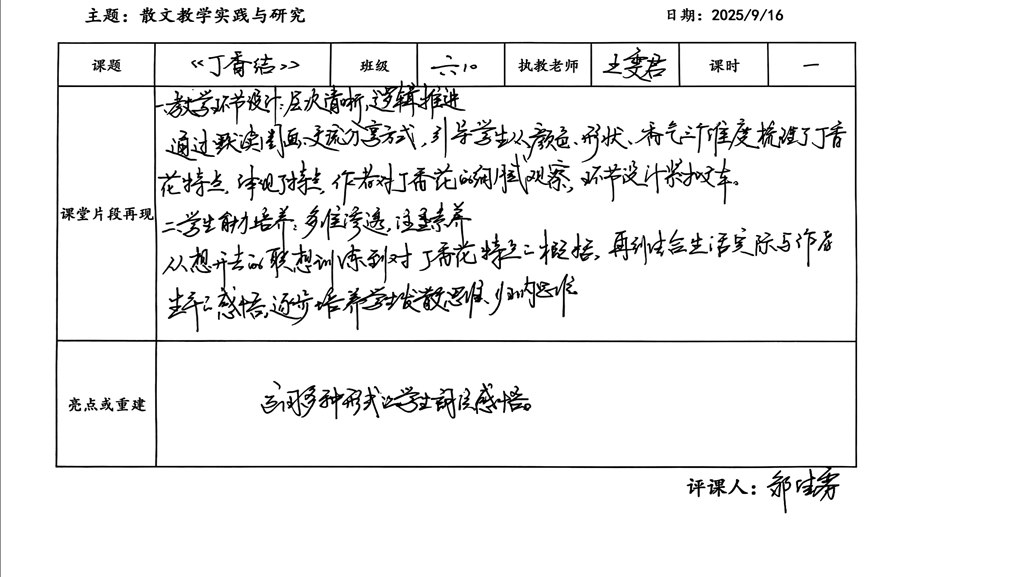 主题：散文教学实践与研究 日期：2025/9/16
课题 《丁香结》 班级 六10 执教老师 王雯君 课时 一
课堂片段再现
一、教学环节设计：层次清晰，逻辑推进
通过默读圈画、交流分享方式，引导学生从颜色、形状、香气三个维度梳理了丁香
花特点，体现了特点，作者对丁香花的细腻观察，环节设计紧扣文本。
二、学生能力培养：多维渗透，注重素养
从想开去的联想训练到对丁香花特点的概括，再到结合生活实际与作者
生平的感悟，逐步培养学生发散思维、归纳思维
亮点或重建
运用多种形式让学生朗读感悟。
评课人：